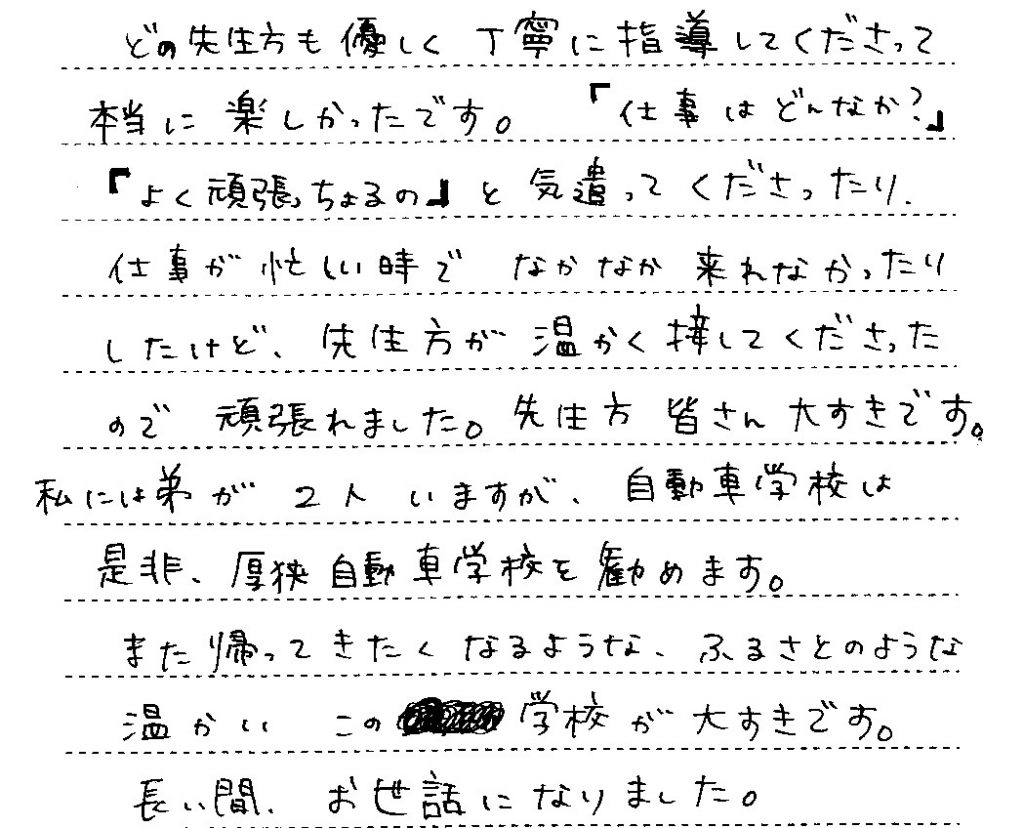 どの先生方も優しく丁寧に指導してくださって
本当に楽しかったです。『仕事はどんなか？』
『よく頑張っちょるの』と気遣ってくださったり、
仕事が忙しい時でなかなか来れなかったり
したけど、先生方が温かく接してくださった
ので頑張れました。先生方皆さん大すきです。
私には弟が2人いますが、自動車学校は
是非、厚狭自動車学校を勧めます。
また帰ってきたくなるような、ふるさとのような
温かいこの学校が大すきです。
長い間、お世話になりました。